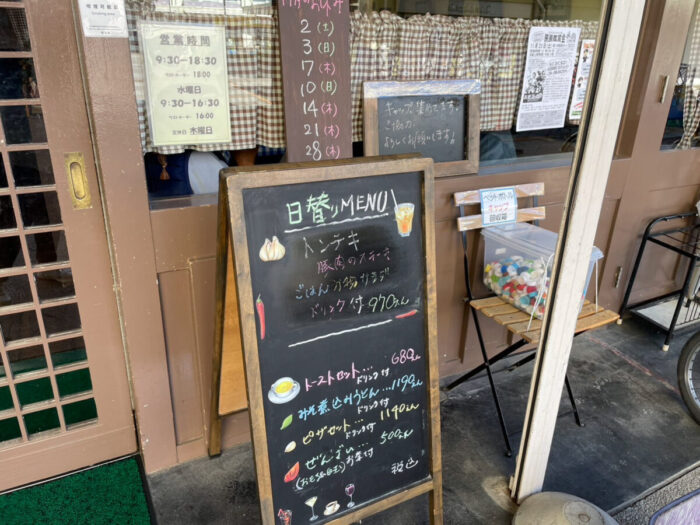 営業時間
9:30-18:30
ラストオーダー 18:00
水曜日
9:30-16:30
ラストオーダー 16:00
定休日 水曜日
月のお休み
2 (土)
3 (日)
7 (木)
10 (日)
14 (木)
21 (木)
28 (木)
キャップ集めてます。
ご協力
よろしくお願いします!
ペットボトル
キャップ
回収箱
日替りMENU
トンテキ
豚肉のステーキ
ごはん お味噌汁 サラダ
ドリンク付 970えん
トーストセット... 680えん
ドリンク付
みそ煮込みうどん...1190えん
ドリンク付
ピザセット... 1140えん
ドリンク付
ぜんざい... 500えん
お茶付
税込